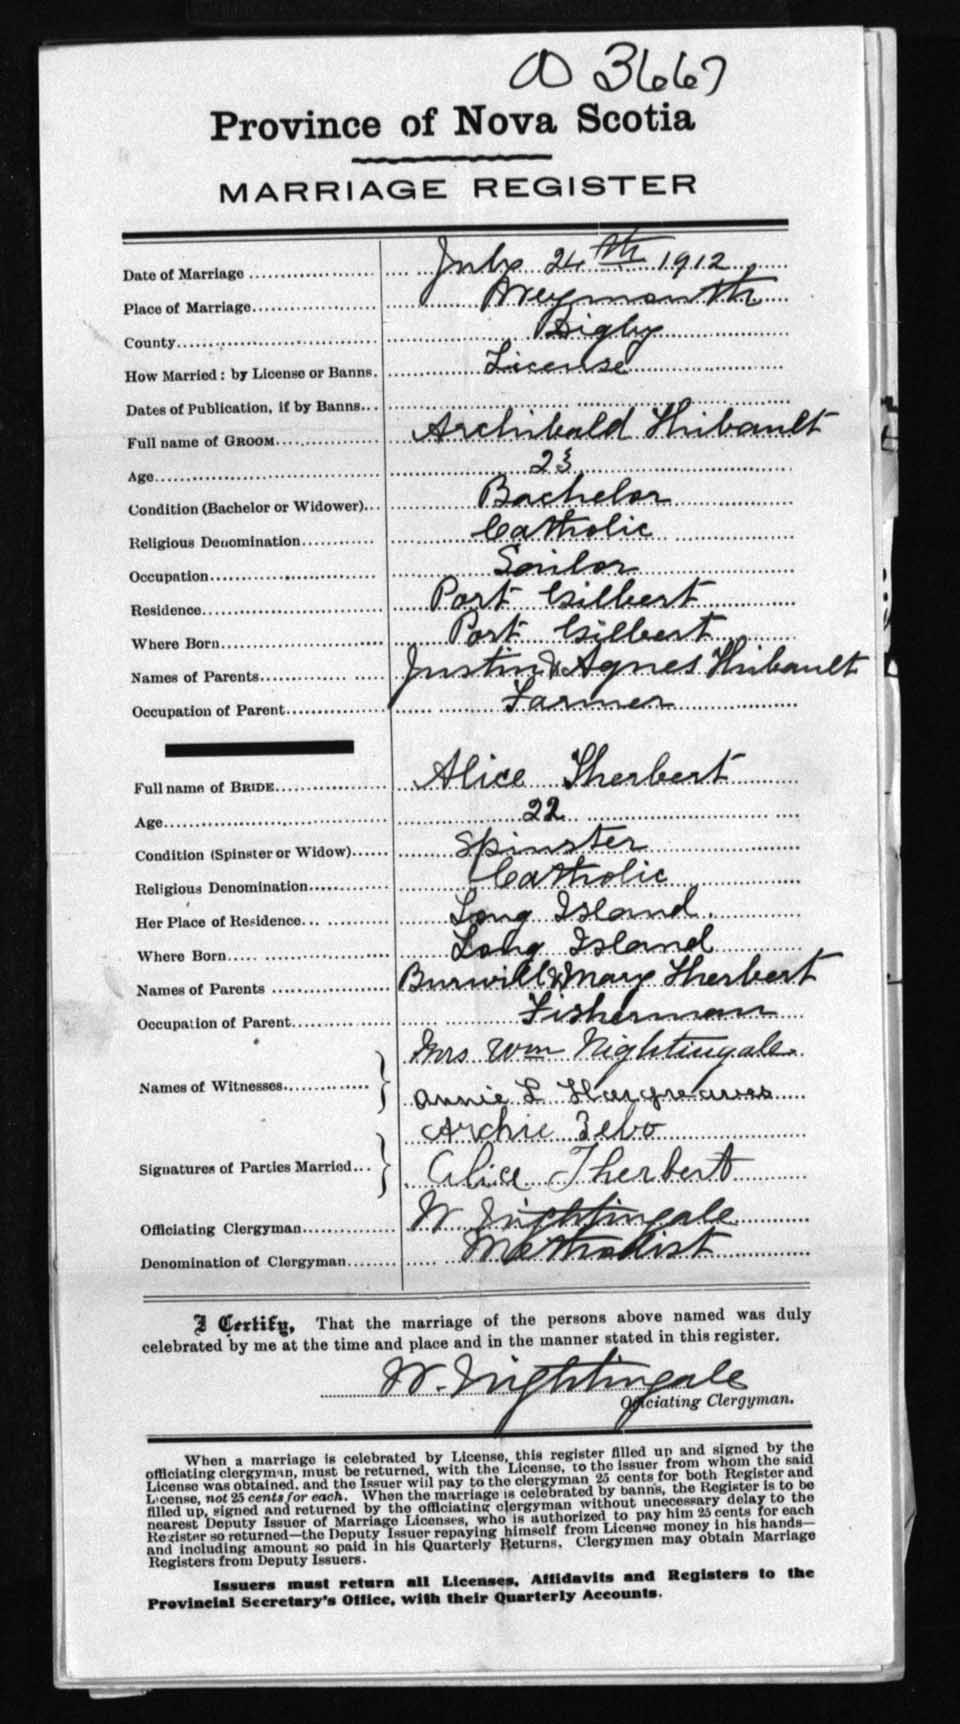 OO 3667
Province of Nova Scotia
MARRIAGE REGISTER
Date of Marriage July 24th 1912
Place of Marriage Weymouth
County Digby
How Married: by License or Banns. License
Dates of Publication, if by Banns
Full name of GROOM Archibald Thibault
Age 23
Condition (Bachelor or Widower) Bachelor
Religious Denomination Catholic
Occupation Sailor
Residence Port Gilbert
Where Born Port Gilbert
Names of Parents Justin & Agnes Thibault
Occupation of Parent Farmer
Full name of BRIDE Alice Therbert
Age 22
Condition (Spinster or Widow) Spinster
Religious Denomination Catholic
Her Place of Residence Long Island.
Where Born Long Island
Names of Parents Burwill & Mary Therbert
Occupation of Parent Fisherman
Mrs Wm Nightingale.
Names of Witnesses
Annie L Hargreaves
Archie Zebo
Signatures of Parties Married
Alice Therbert
Officiating Clergyman W Nightingale
Denomination of Clergyman Methodist
I Certify, That the marriage of the persons above named was duly
celebrated by me at the time and place and in the manner stated in this register.
W. Nightingale
Officiating Clergyman.
When a marriage is celebrated by License, this register filled up and signed by the
officiating clergyman, must be returned, with the License, to the issuer from whom the said
License was obtained, and the Issuer will pay to the clergyman 25 cents for both Register and
License, not 25 cents for each. When the marriage is celebrated by banns, the Register is to be
filled up, signed and returned by the officiating clergyman without unnecessary delay to the
nearest Deputy Issuer of Marriage Licenses, who is authorized to pay him 25 cents for each
Register so returned—the Deputy Issuer repaying himself from License money in his hands—
and including amount so paid in his Quarterly Returns. Clergymen may obtain Marriage
Registers from Deputy Issuers.
Issuers must return all Licenses, Affidavits and Registers to the
Provincial Secretary's Office, with their Quarterly Accounts.